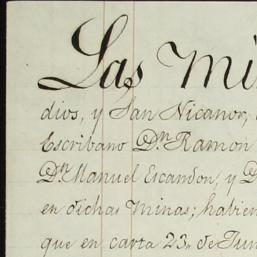 Las Mi
dios, y San Nicanor,
Escribano Dn. Ramon
Dn. Manuel Escandon, y D
en dichas Minas; habien
que en carta 23, de Jun